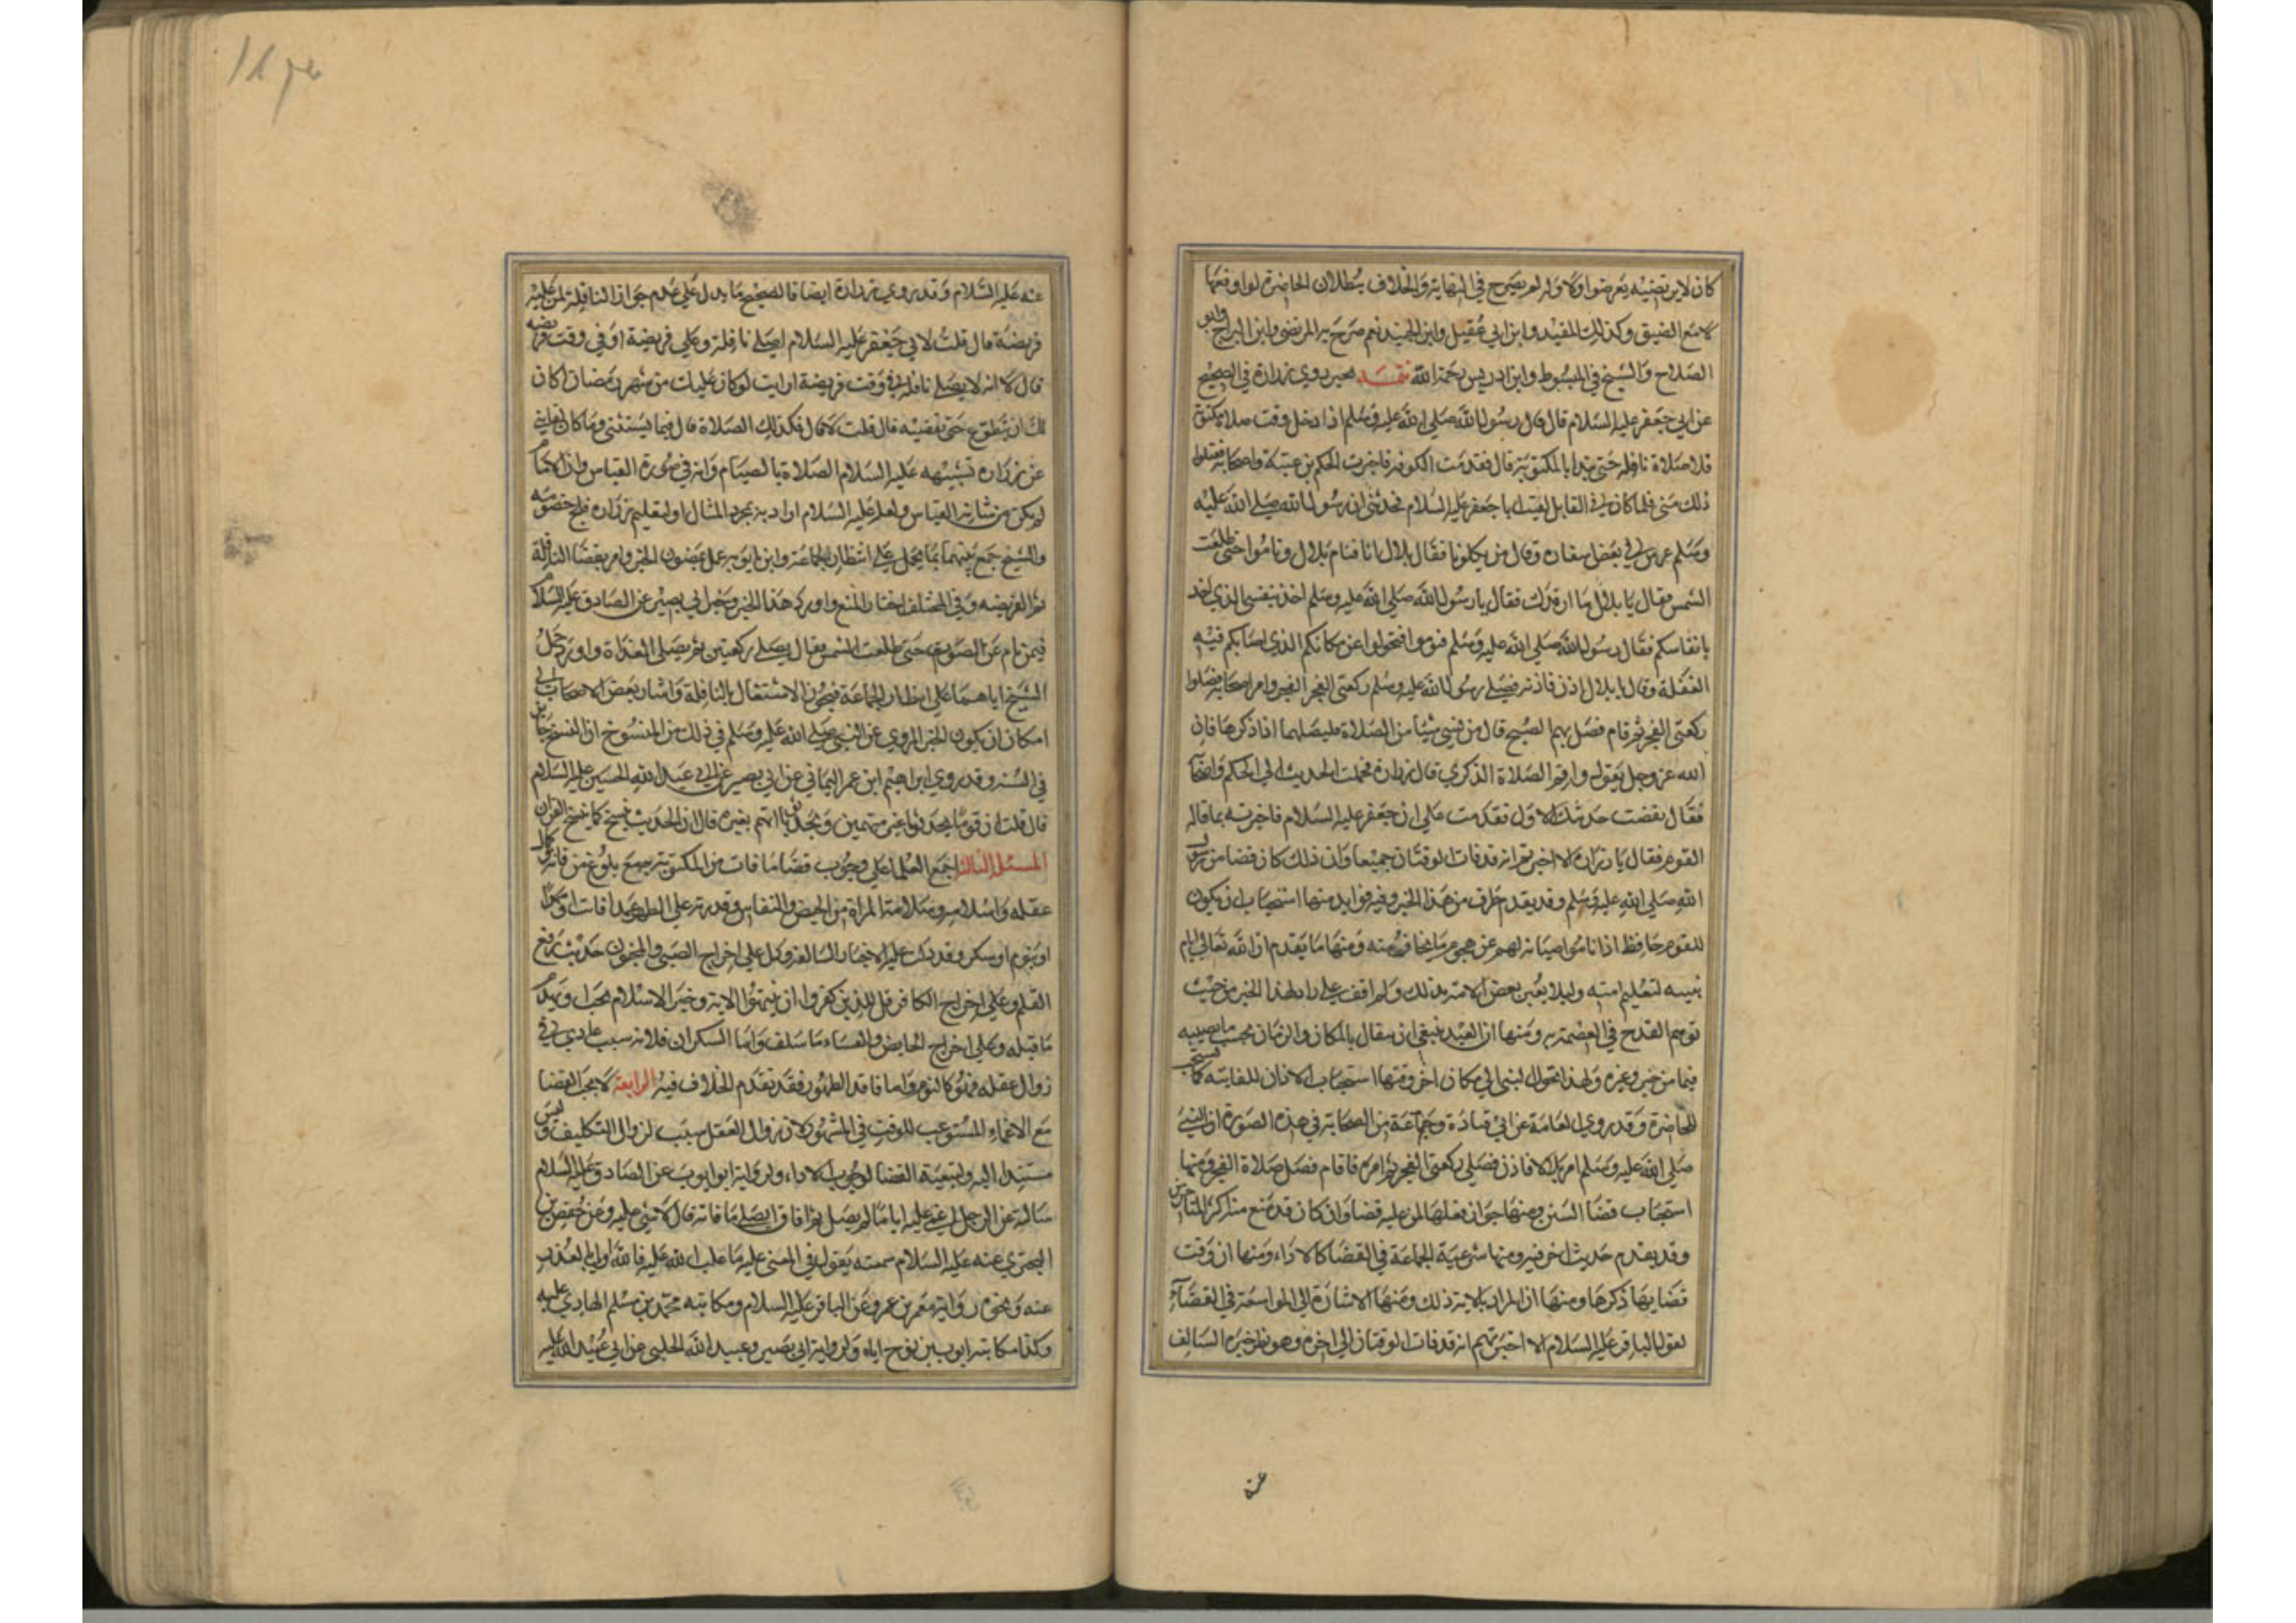 كان لابن تصنيه يعرضوا وكا وله لم يصرح في النهاية والخلاف ببطلان الحاضرة لو اوقعها
لا مع الضيق وكذلك المفيد وابن ابي عقيل وابن الجنيد نعم صرح به المرتضى وابن البراج وابو
الصلاح والشيخ في المبسوط وابن ادريس رحمة الله روي زرارة في الصحيح
عن ابي جعفر عليه السلام قال قال رسول الله صلى الله عليه وسلم اذا دخل وقت صلاة مكتوبة
فلا صلاة نافلة حتى يبدا بالمكتوبة قال فقدمت الكوفه فاخبرت الحكم بن عتيبة واصحابه فقبلوا
ذلك مني فلما كان في القابل لقيت ابا جعفر عليه السلام فحدثني ان رسول الله صلى الله عليه
وسلم عرس في بعض اسفاره وقال من يكلونا فقال بلال انا فنام بلال وناموا حتى طلعت
الشمس فقال يا بلال ما ارقدك فقال يا رسول الله صلى الله عليه وسلم اخذ بنفسي الذي اخذ
بانفاسكم فقال رسول الله صلى الله عليه وسلم قوموا فتحولوا عن مكانكم الذي اصابكم فيه
الغفلة وقال يا بلال اذن فاذن فصلى رسول الله عليه وسلم ركعتي الفجر وامر اصحابه فصلوا
ركعتي الفجر ثم قام فصلى بهم الصبح قال من نسي شيئا من الصلاة فليصلها اذا ذكرها فان
الله عز وجل يقول واقم الصلاة لذكري قال زرارة فحملت الحديث الى الحكم واصحابه
فقال نقضت حديثك الاول فقدمت على ابي جعفر عليه السلام فاخبرته بما قاله
القوم فقال يا زرارة الا اخبرتهم انه قد فات الوقتان جميعا وان ذلك كان قضا من رسول
الله صلى الله عليه وسلم وقد يقدم طرف من هذا الخبر وفيه فوايد منها استحباب ان يكون
للقوم حافظ اذا ناموا صيانة لهم عن هجوم ما يخاف منه ومنها ما يقدم ان الله تعالى انام
نبيه لتعليم امته وليلا يعير بعض الامة بذلك ولم اقف على راد لهذا الخبر من حيث
توهم القدح في العصمة به ومنها ان العبد ينبغي ان يتفال بالمكان والزمان بحسب ما يصيبه
فيها من خير وغيره ولهذا تحول النبي الى مكان اخر ومنها استحباب الاذان للفايتة كما يستحب
للحاضرة وقد روي العامة عن ابي قتادة وجماعة من الصحابة في هذه الصورة ان النبي
صلى الله عليه وسلم امر بلالا فاذن فصلى ركعتي الفجر ثم امره فاقام فصلى صلاة الفجر ومنها
استحباب قضا السنن ومنها جواز فعلها لمن عليه قضا وان كان قد منع منه اكثر المتاخرين
وقد يقدم حديث اخر فيه ومنها شرعية الجماعة في القضا كالاداء ومنها ان وقت
قضايها ذكرها ومنها ان المراد بالاية ذلك ومنها الاشارة الى المواسعة في القضآء
لقول الباقر عليه السلام الا اخبرتهم انه قد فات الوقتان الى اخره وهو نظير خبره السالف
عنه
عنه عليه السلام وقد روي زرارة ايضا في الصحيح ما يدل على عدم جواز النافلة لمن عليه
فريضة قال قلت لابي جعفر عليه السلام اصلي نافلة وعلي فريضة او في وقت فريضه
قال لا انه لا يصلى نافلة في وقت فريضة ارايت لو كان عليك من شهر رمضان اكان
لك ان تتطوع حتى تقضيه قال قلت لا قال فكذلك الصلاة قال فيما يستثنى وما كان
عن زرارة تشبيهه عليه السلام الصلاة بالصيام وانه في صورة القياس وان كنا
لم يكن من شانه القياس ولعله عليه السلام اراد به مجرد المثال او لتعليم زرارة
والشيخ جمع بينهما بما يحمل على انتظار الجماعة وابن بابويه عمل بمضمون الخبر وامر بقضا النافلة
ثم الفريضه وفي المختلف اختار المنع واورد هذا الخبر وخبر ابي بصير عن الصادق عليه السلام
فيمن نام عن الصبح حتى طلعت الشمس فقال يصلي ركعتين ثم يصلي الغداة واورد حمل
الشيخ اياهما على انتظار الجماعة فيجوز الاشتغال بالنافلة واشار بعض الاصحاب الى
امكان ان يكون الخبر المروي عن النبي صلى الله عليه وسلم في ذلك من المنسوخ اذ النسخ جايز
في السنة وقد روي ابراهيم ابن عمر اليماني عن ابي بصير عن ابي عبد الله الحسين عليه السلام
قال قلت ان قوما يحدثونا غير متهمين ونجد اتهم بغيره قال ان الحديث ينسخ كما ينسخ القران
المسئلة الثالثة اجمع العلما على وجوب قضا ما فات من المكتوبة جميع بلوغ من فاته وكمال
عقله واسلامه وسلامة المراة من الحيض والنفاس وقدرته على الطهور عمدا فات او سهوا
او بنوم او سكر وقد دلت عليه الاخبار السالفة وكل على اخراج الصبي والمجنون حديث رفع
القلم وعلى اخراج الكافر قل للذين كفروا ان ينتهوا الاية وخبر الاسلام يجب ويهدم
ما قبله وعلى اخراج الحايض والنفساء ما سلف واما السكران فلانه سبب عادي في
زوال عقله فهو كالنوم واما فاقد الطهور فقد تقدم الخلاف فيه الرابعة لا يجب القضا
مع الاغماء المستوعب للوقت في المشهور لان زوال العقل سبب لزوال التكليف وليس
مستندا اليه ولتبعية القضا لوجوب الاداء ولرواية ابو ايوب عن الصادق عليه السلام
سالته عن الرجل اغمي عليه اياما لم يصل ثم افاق ايصلي ما فاته قال لا شي عليه وعن حفص بن
البختري عنه عليه السلام سمعته يقول في المغمى عليه ما غلب الله عليه فالله اولى بالعذر
عنه ونحوه رواية معمر بن عمر وعن الباقر عليه السلام ومكاتبه محمد بن مسلم الهادي عليه
وكذا مكاتبة ايوب بن نوح اياه ولرواية ابي بصير وعبيد الله الحلبي عن ابي عبد الله عليه